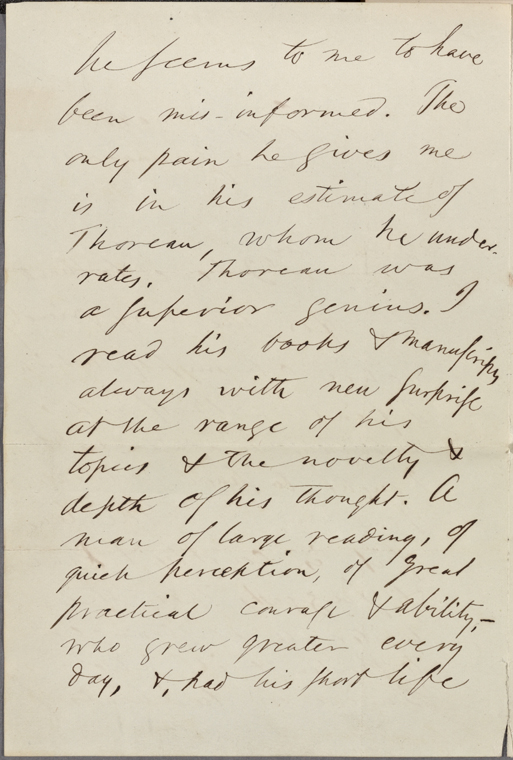 he seems to me to have
been mis-informed. The
only pain he gives me
is in his estimate of
Thoreau, whom he under-
rates. Thoreau was
a superior genius. I
read his books & manuscripts
always with new surprise
at the range of his
topics & the novelty &
depth of his thought. A
man of large reading, of
quick perception, of great
practical courage & ability,-
who grew greater every
day, &, had his short life